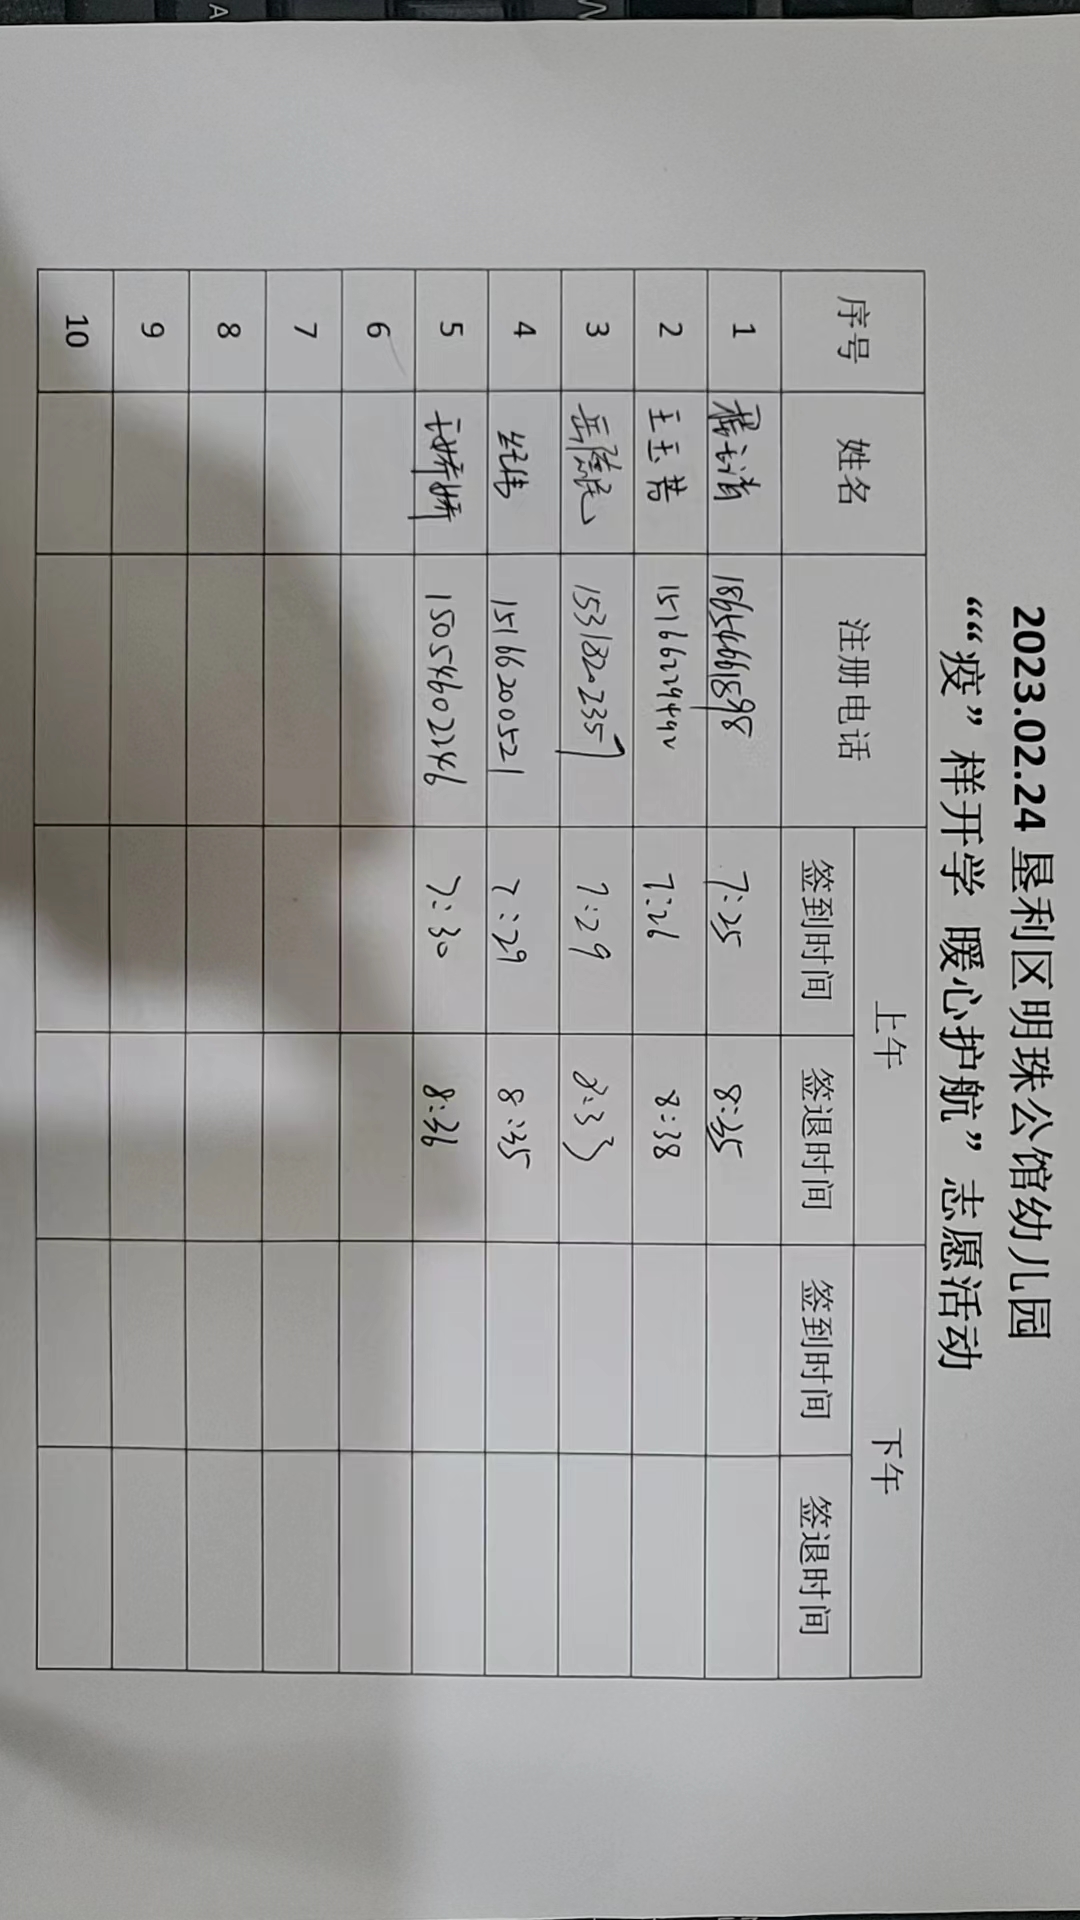 2023.02.24 垦利区明珠公馆幼儿园
““疫”样开学 暖心护航”志愿活动
序号 姓名 注册电话 上午 下午
签到时间 签退时间 签到时间 签退时间
1 18654661898 7:25 8:35
2 王玉茜 7:26 8:38
3 15318202357 7:29 8:33
4 纪伟 15166200521 7:29 8:35
5 15054602246 7:30 8:36
6
7
8
9
10